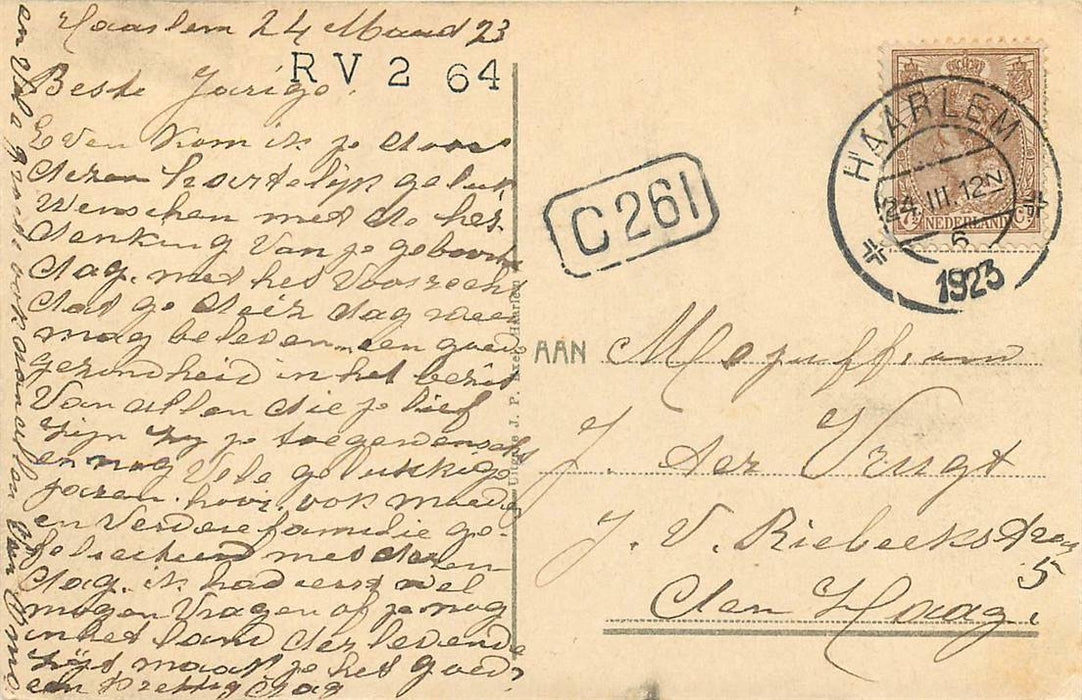 Haarlem 24 Maart 23
RV2 64
Beste Jarige.
Even kom ik je door
dezen hartelijk geluk
Wenschen met de her-
denking Van je geboorte
dag. met het Voorrecht
dat ge deze dag weer
mag beleven. en goed
gezondheid in het bezit
Van allen die je lief
zijn zij je toegewenscht
en nog Vele gelukkige
jaren. ook Moeder
en Verdere familie ge-
feliciteerd met dezen
dag. ik had eerst wel
mogen Vragen of je nog
in het land der levende
zijt, maak je het goed?
een Prettig dag
en Vele groeten ook aan allen Van
C 261
HAARLEM
24.III.12N
6
1923
7½ NEDERLAND Ct
Uitg. J. P. Exel, Haarlem
AAN Mejuffrouw
J. ter Vrugt
J. V. Riebeekstraat
5
den Haag.